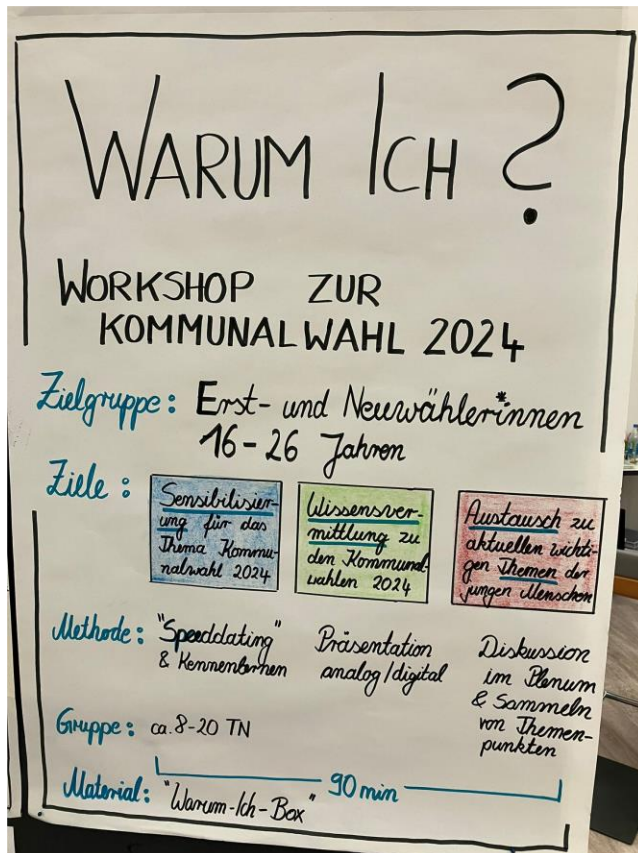 WARUM ICH ?
WORKSHOP ZUR
KOMMUNALWAHL 2024
Zielgruppe: Erst- und Neuwähler*innen
16-26 Jahren
Ziele:
Sensibilisier-
ung für das
Thema Kommu-
nalwahl 2024
Wissensver-
mittlung zu
den Kommunal-
wahlen 2024
Austausch zu
aktuellen wichti-
gen Themen der
jungen Menschen
Methode: "Speeddating"
& Kennenlernen
Präsentation
analog/digital
Diskussion
im Plenum
& Sammeln
von Themen-
punkten
Gruppe: ca. 8-20 TN
90 min
Material: "Warum-Ich-Box"